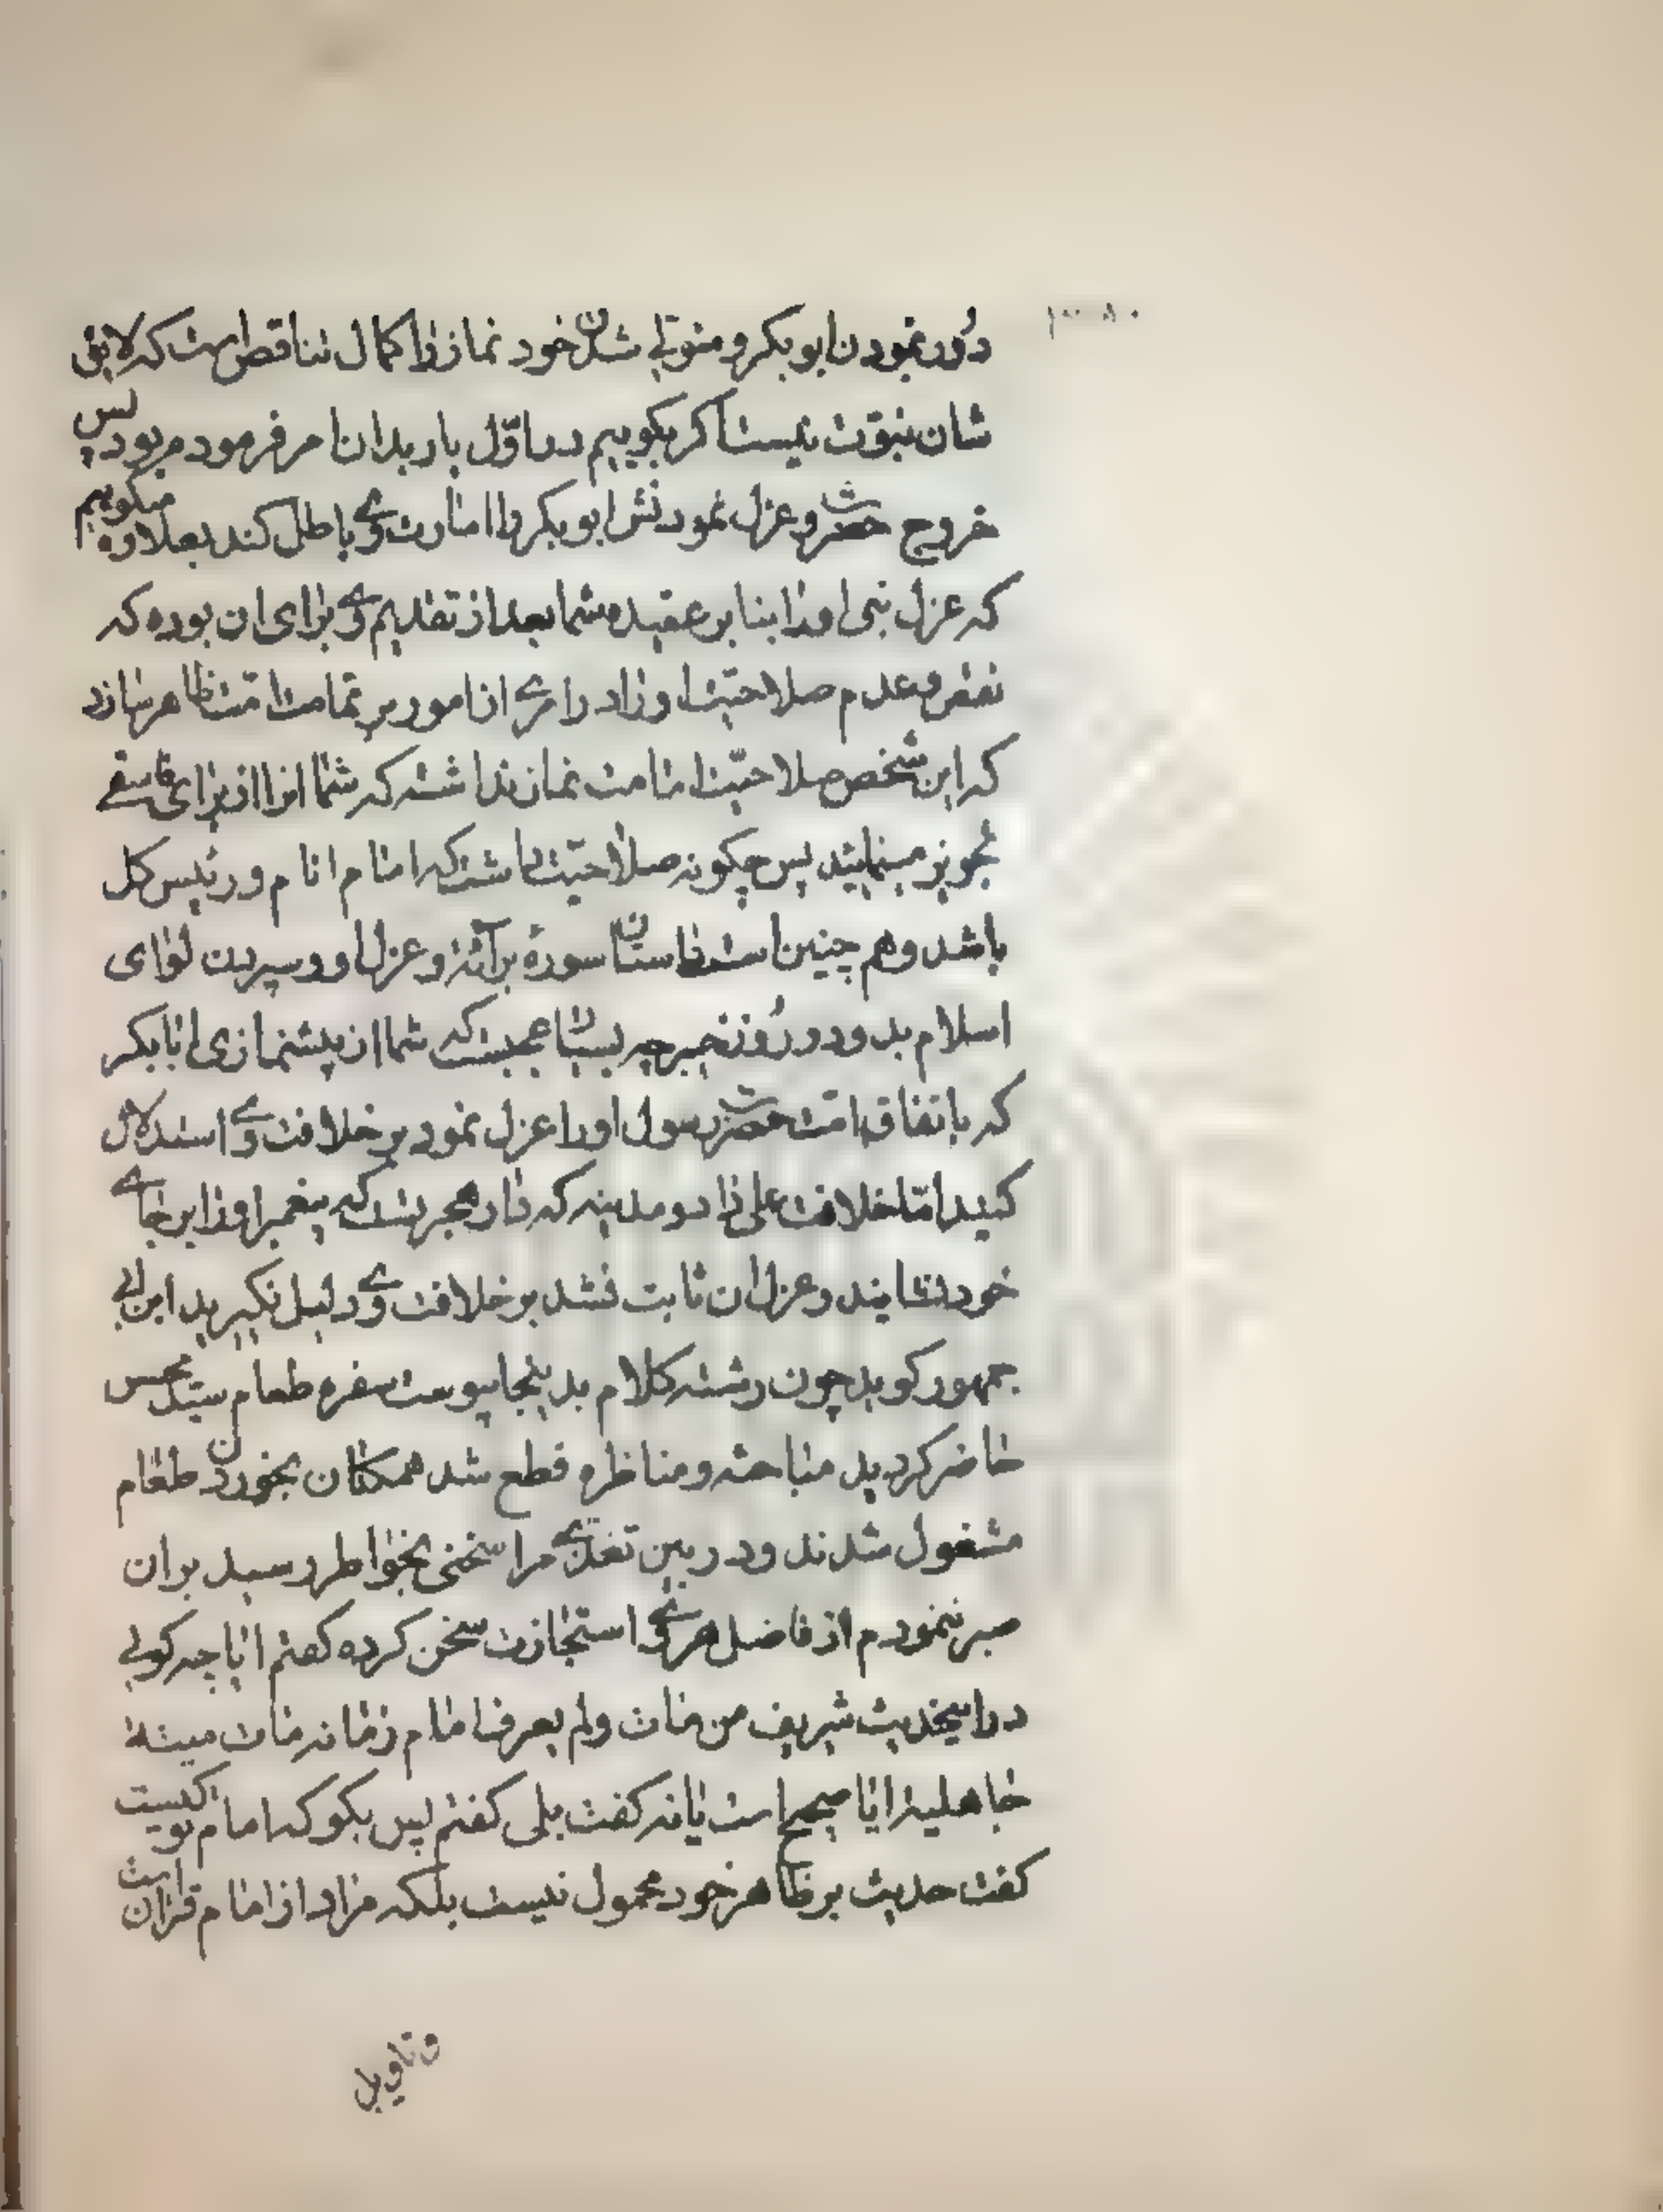 دور نمودن ابوبکر و متولی شدن خود نماز را کمال تناقض است که لایق
شان نبوّت نیست اکر بکوییم در اوّل بار بدان امر فرموده بود پس
خروج حضرت و عزل نمودنش ابوبکر را امارت وی باطل کند بعلاوه میکوییم
که عزل نبی او را بنا بر عقیده شما بعد از تقدیم وی برای ان بوده که
نقص و عدم صلاحیّت او را در امری از امور بر تمامت امّت ظاهر سازد
که این شخص صلاحیّت امامت نماز نداشته که شما انرا از برای فاسقی
تجویز مینمایید پس چکونه صلاحیّت داشت که امام انام و رئیس کل
باشد و هم چنین است داستان سورهٔ برآئة و عزل او و سپردن لوای
اسلام بدو در روز خیبر چه بسیار عجیبست که شما از پیشنمازی ابابکر
که باتفاق امّت حضرت رسول او را عزل نمود بر خلافت وی استدلال
کنید امّا خلافت علی را در مدینه که دار هجرتست که پیغمبر او را بر جای
خود نشایند و عزل ان ثابت نشد بر خلافت وی دلیل نکیرید ابن ابی
جمهور کوید چون رشته کلام بدینجا پیوست سفره طعام سیّد محسن
حاضر کردید مباحثه و مناظره قطع شد همکنان بخوردن طعام
مشغول شدند و در بین تغذّی مرا سخنی بخواطر رسید بران
صبر ننمودم از فاضل هروی استجازت سخن کرده کفتم ایا چه کویی
در این حدیث شریف من مات ولم یعرف امام زمانه مات میتة
جاهلیة ایا صحیح است یا نه کفت بلی کفتم پس بکو که امام تو کیست
کفت حدیث بر ظاهر خود محمول نیست بلکه مراد از امام قران است
و تاویل